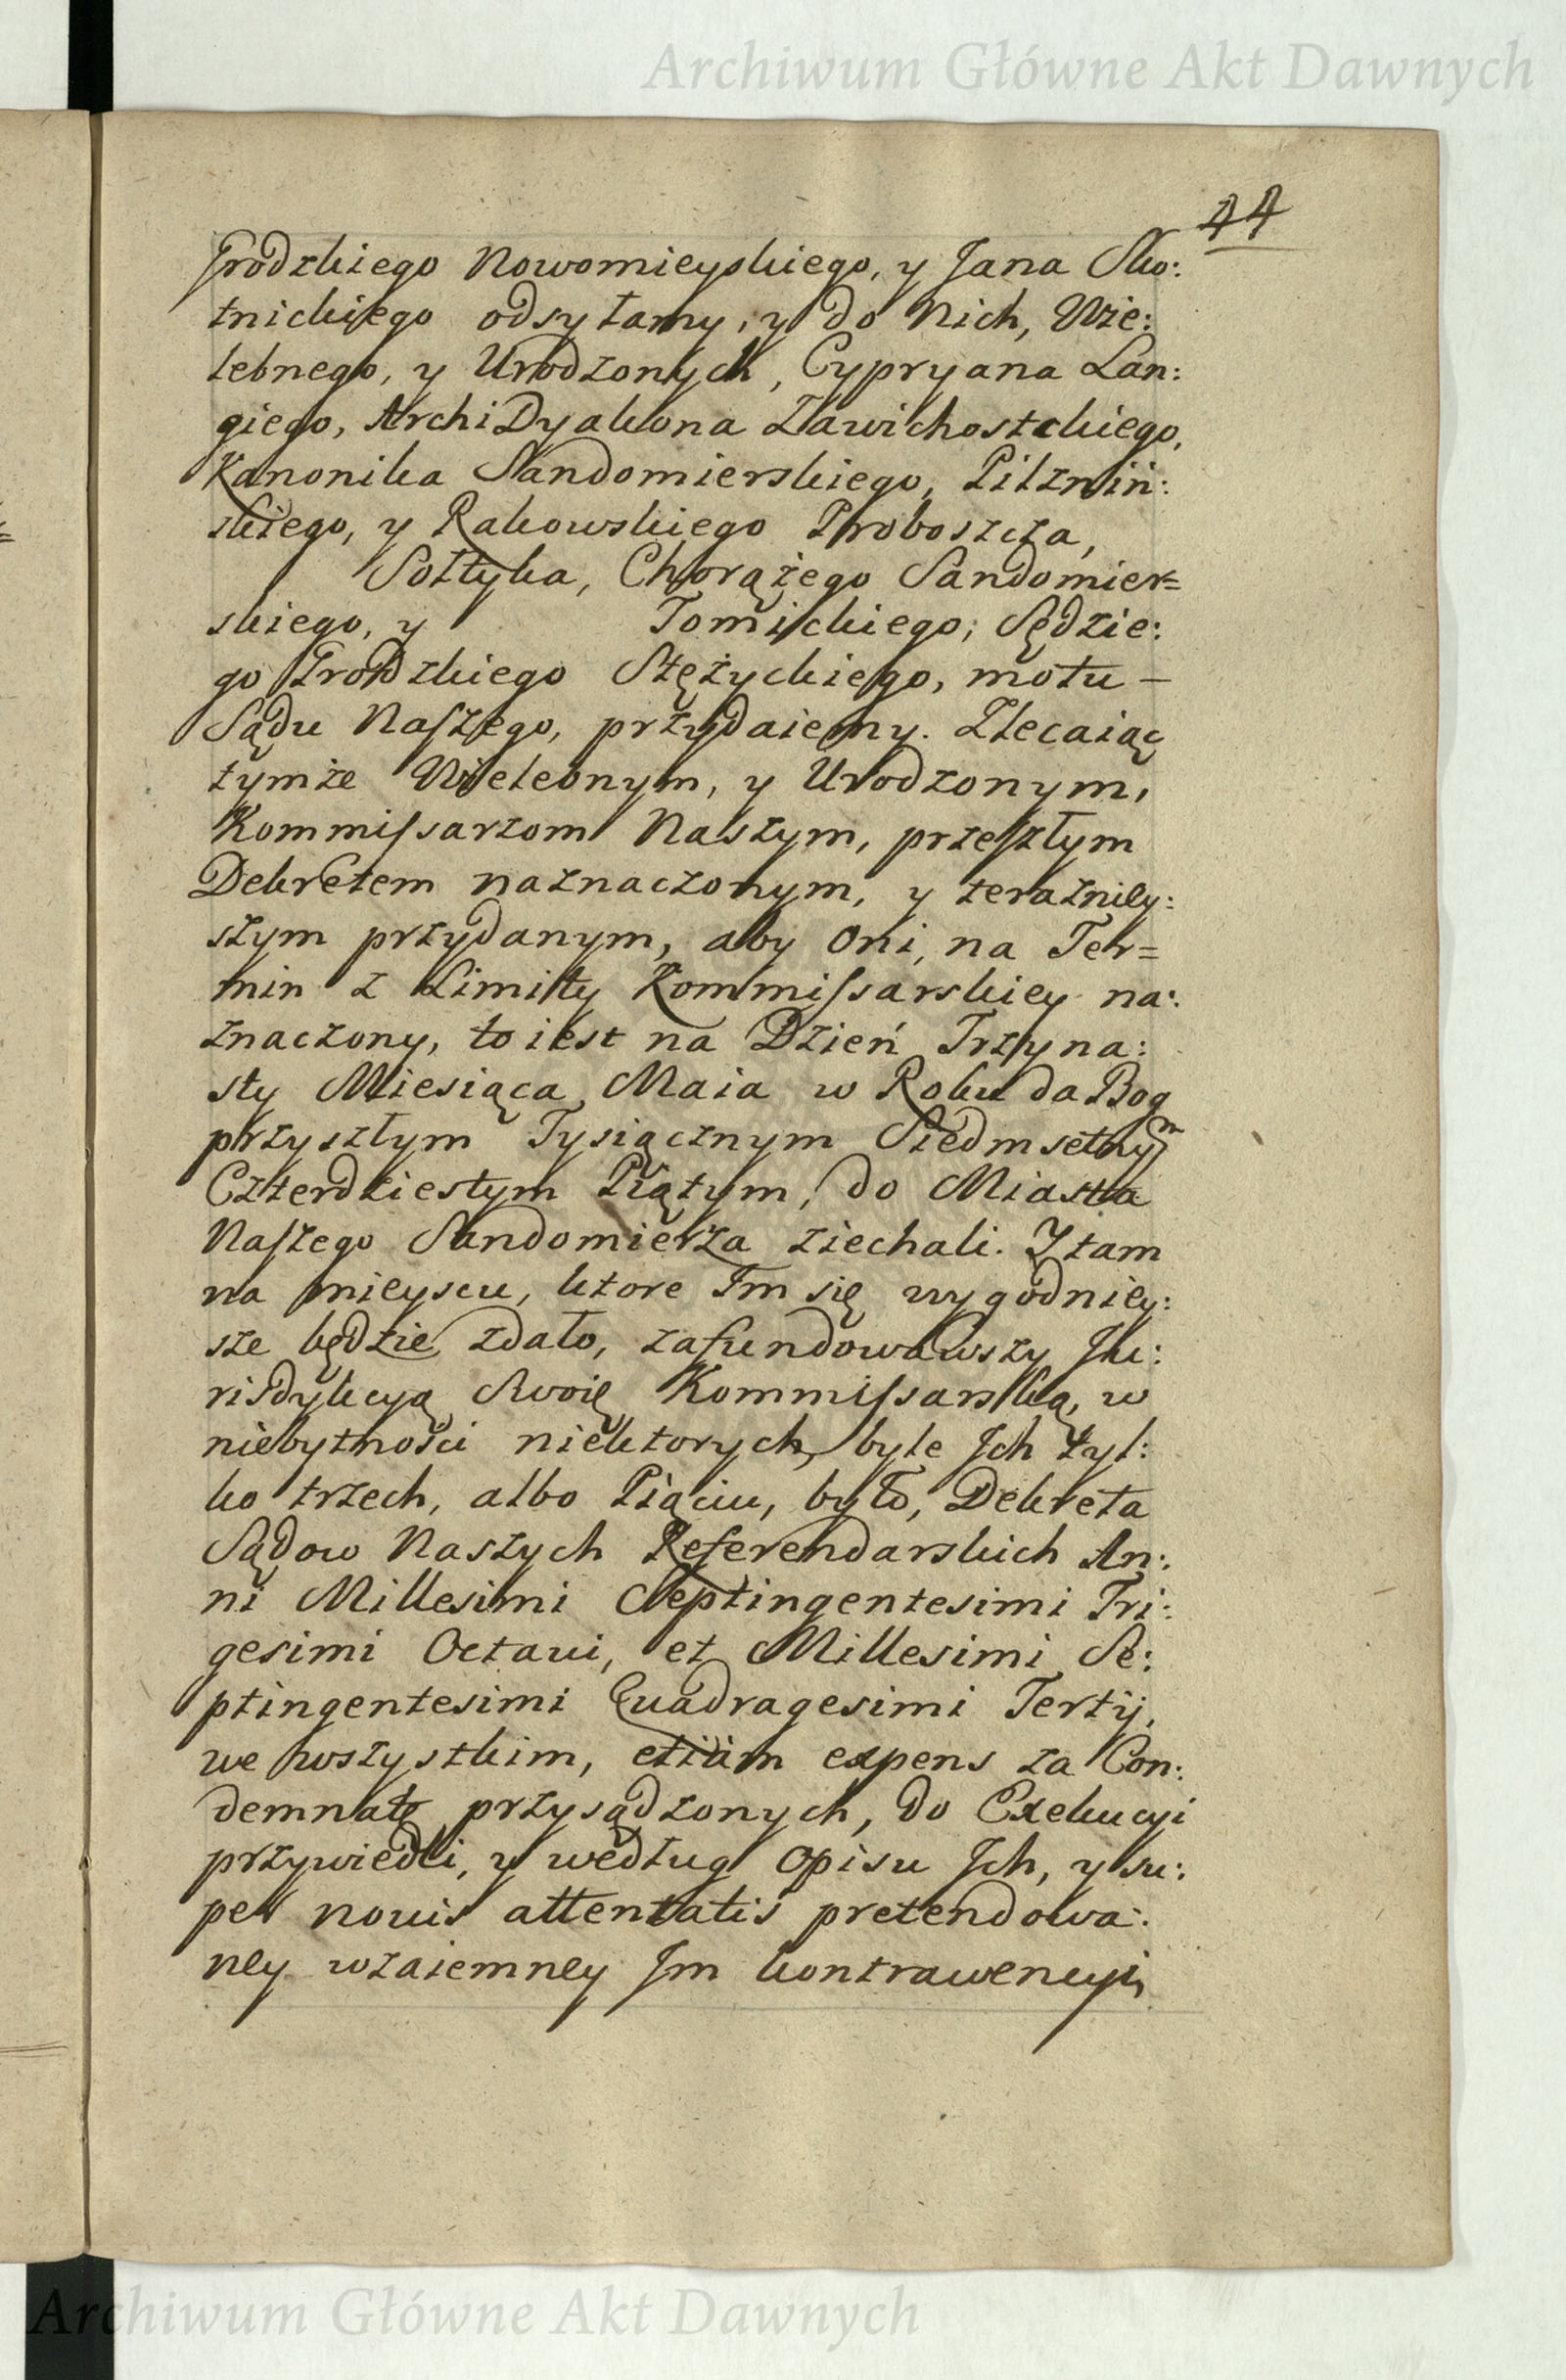 Archiwum Główne Akt Dawnych
44
Grodzkiego Nowomieyskiego, y Jana Sko:
tnickiego odsyłamy, y do Nich, Wie:
lebnego, y Urodzonych, Cypryana Lan:
giego, ArchiDyakona Zawichostckiego,
Kanonika Sandomierskiego, Pilzniń:
skiego, y Rakowskiego Proboszcza,
Sołtyka, Chorążego Sandomier=
skiego, y Tomickiego, Sędzie:
go Grodzkiego Stężyckiego, motu —
Sądu Naszego, przydaiemy. Zlecaiąc
tymże Wielebnym, y Urodzonym,
Kommissarzom Naszym, przeszłym
Dekretem naznaczonym, y teraźniey:
szym przydanym, aby Oni, na Ter=
min z Limity Kommissarskiey na:
znaczony, to iest na Dzień Trzyna:
sty Miesiąca Maia w Roku da Bog
przyszłym Tysiącznym Siedmsetnym
Czterdziestym Piątym, do Miasta
Naszego Sandomierza ziechali. Y tam
na mieyscu, ktore Im się wygodniey:
sze będzie zdało, zafundowawszy Ju:
risdykcyą Swoię Kommissarską, w
niebytności niektorych, byle Ich tyl:
ko trzech, albo Piąciu, było, Dekreta
Sądow Naszych Referendarskich An:
ni Millesimi Septingentesimi Tri:
gesimi Octaui, et Millesimi Se:
ptingentesimi Quadragesimi Tertij,
we wszystkim, etiam expens za Con:
demnatę przysądzonych, do Exekucyi
przywiedli, y według Opisu Ich, y su:
per nouis attentatis pretendowa:
ney wzaiemney Im kontrawencyi,
Archiwum Główne Akt Dawnych